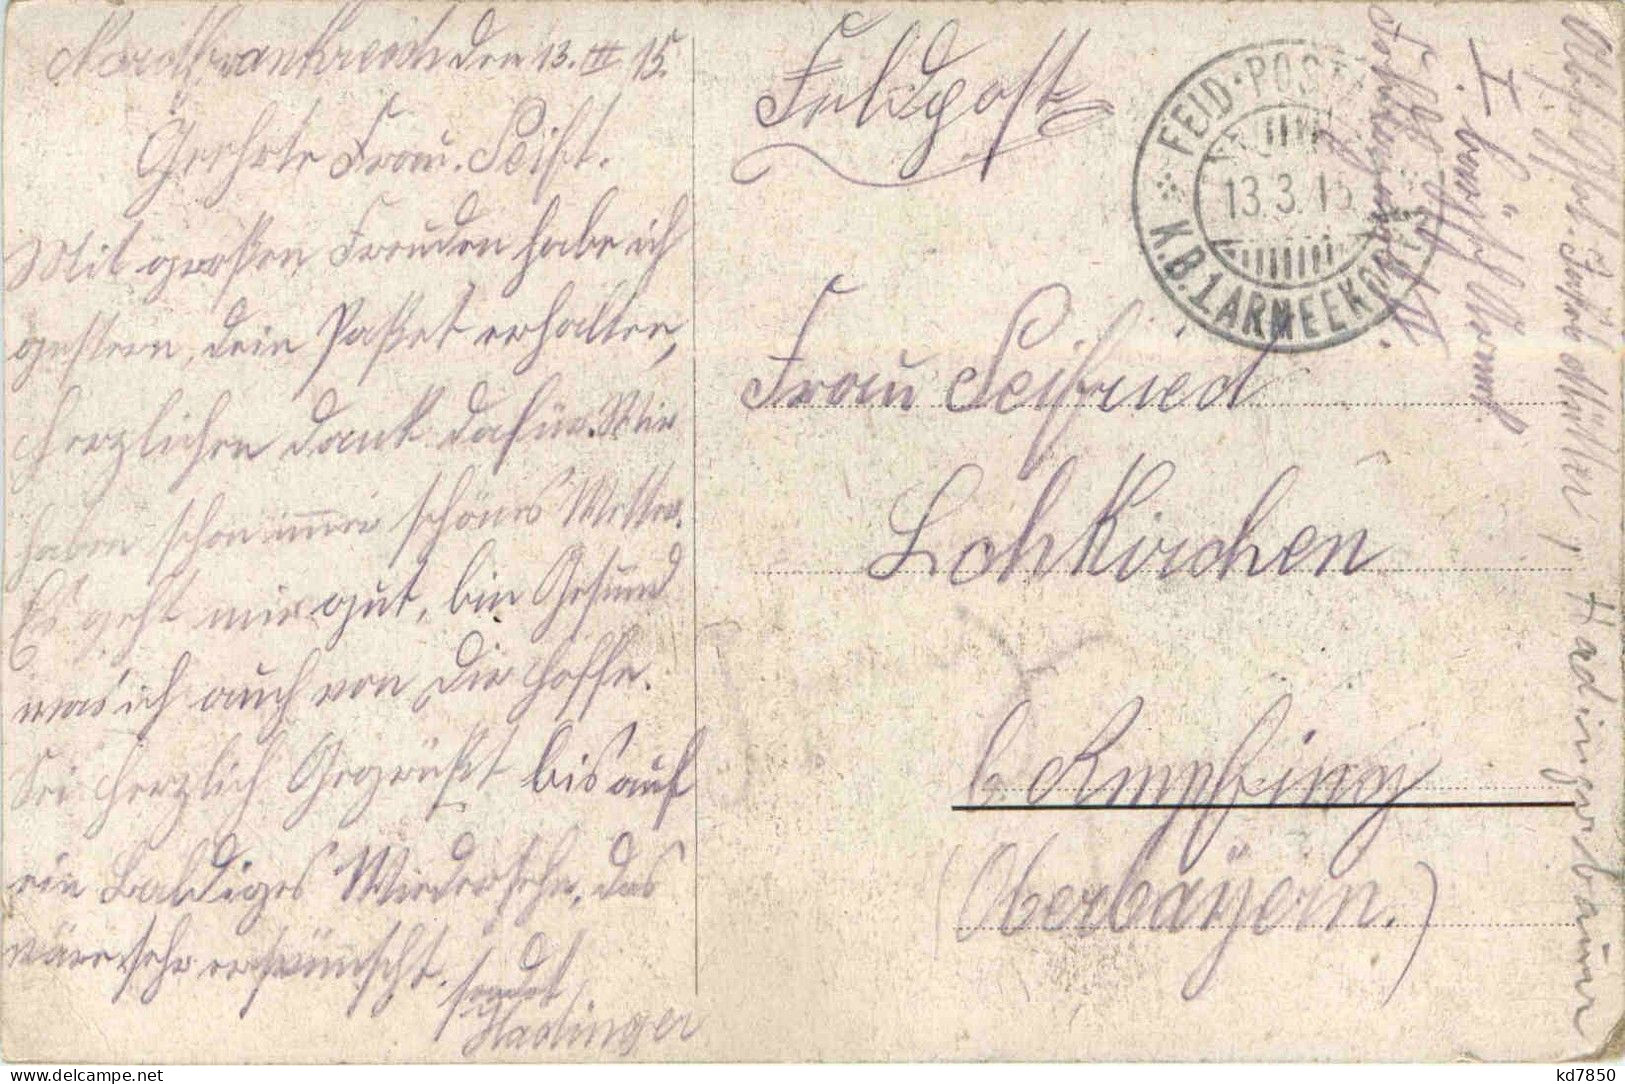 Nordfrankreich den 13. III 15.
Geehrte Frau. Seift.
Mit großen Freuden habe ich
gestern, dein Paket erhalten,
herzlichen dank dafür. Wir
haben schon immer schönes Wetter.
Es geht mir gut, bin Gesund
was ich auch von Dir hoffe.
Sei herzlich Gegrüßt bis auf
ein Baldiges Wiedersehn, das
wäre sehr erwünscht.
sendet
Hadinger
Feldpost
FELD-POST
13.3.15
K.B.1.ARMEEKORPS
Frau Seifried
Lohkirchen
b. Ampfing
(Oberbayern.)
Müller, Hadingerbauer
kd7850